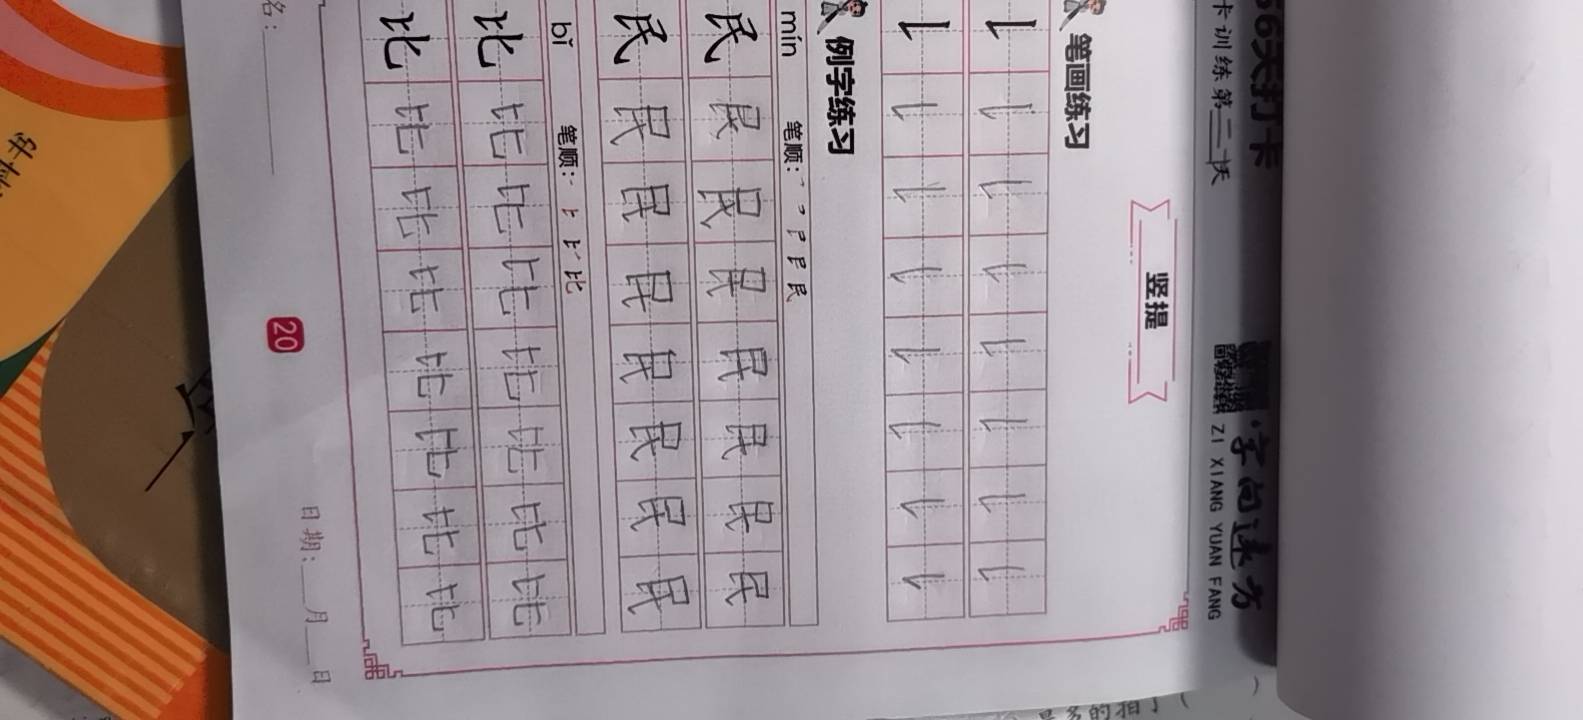 66天打卡
字向远方
卡训练第二十天
ZI XIANG YUAN FANG
竖提
笔画练习
例字练习
mín 笔顺：
民 民 民 民 民 民 民 民
民 民 民 民 民 民 民 民
bǐ 笔顺： 比
比 比 比 比 比 比 比 比
比 比 比 比 比 比 比 比
名：
日期：__月__日
20